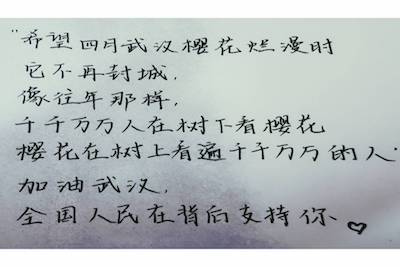 “希望四月武汉樱花烂漫时
它不再封城.
像往年那样,
千千万万人在树下看樱花
樱花在树上看遍千千万万的人.
加油武汉,
全国人民在背后支持你